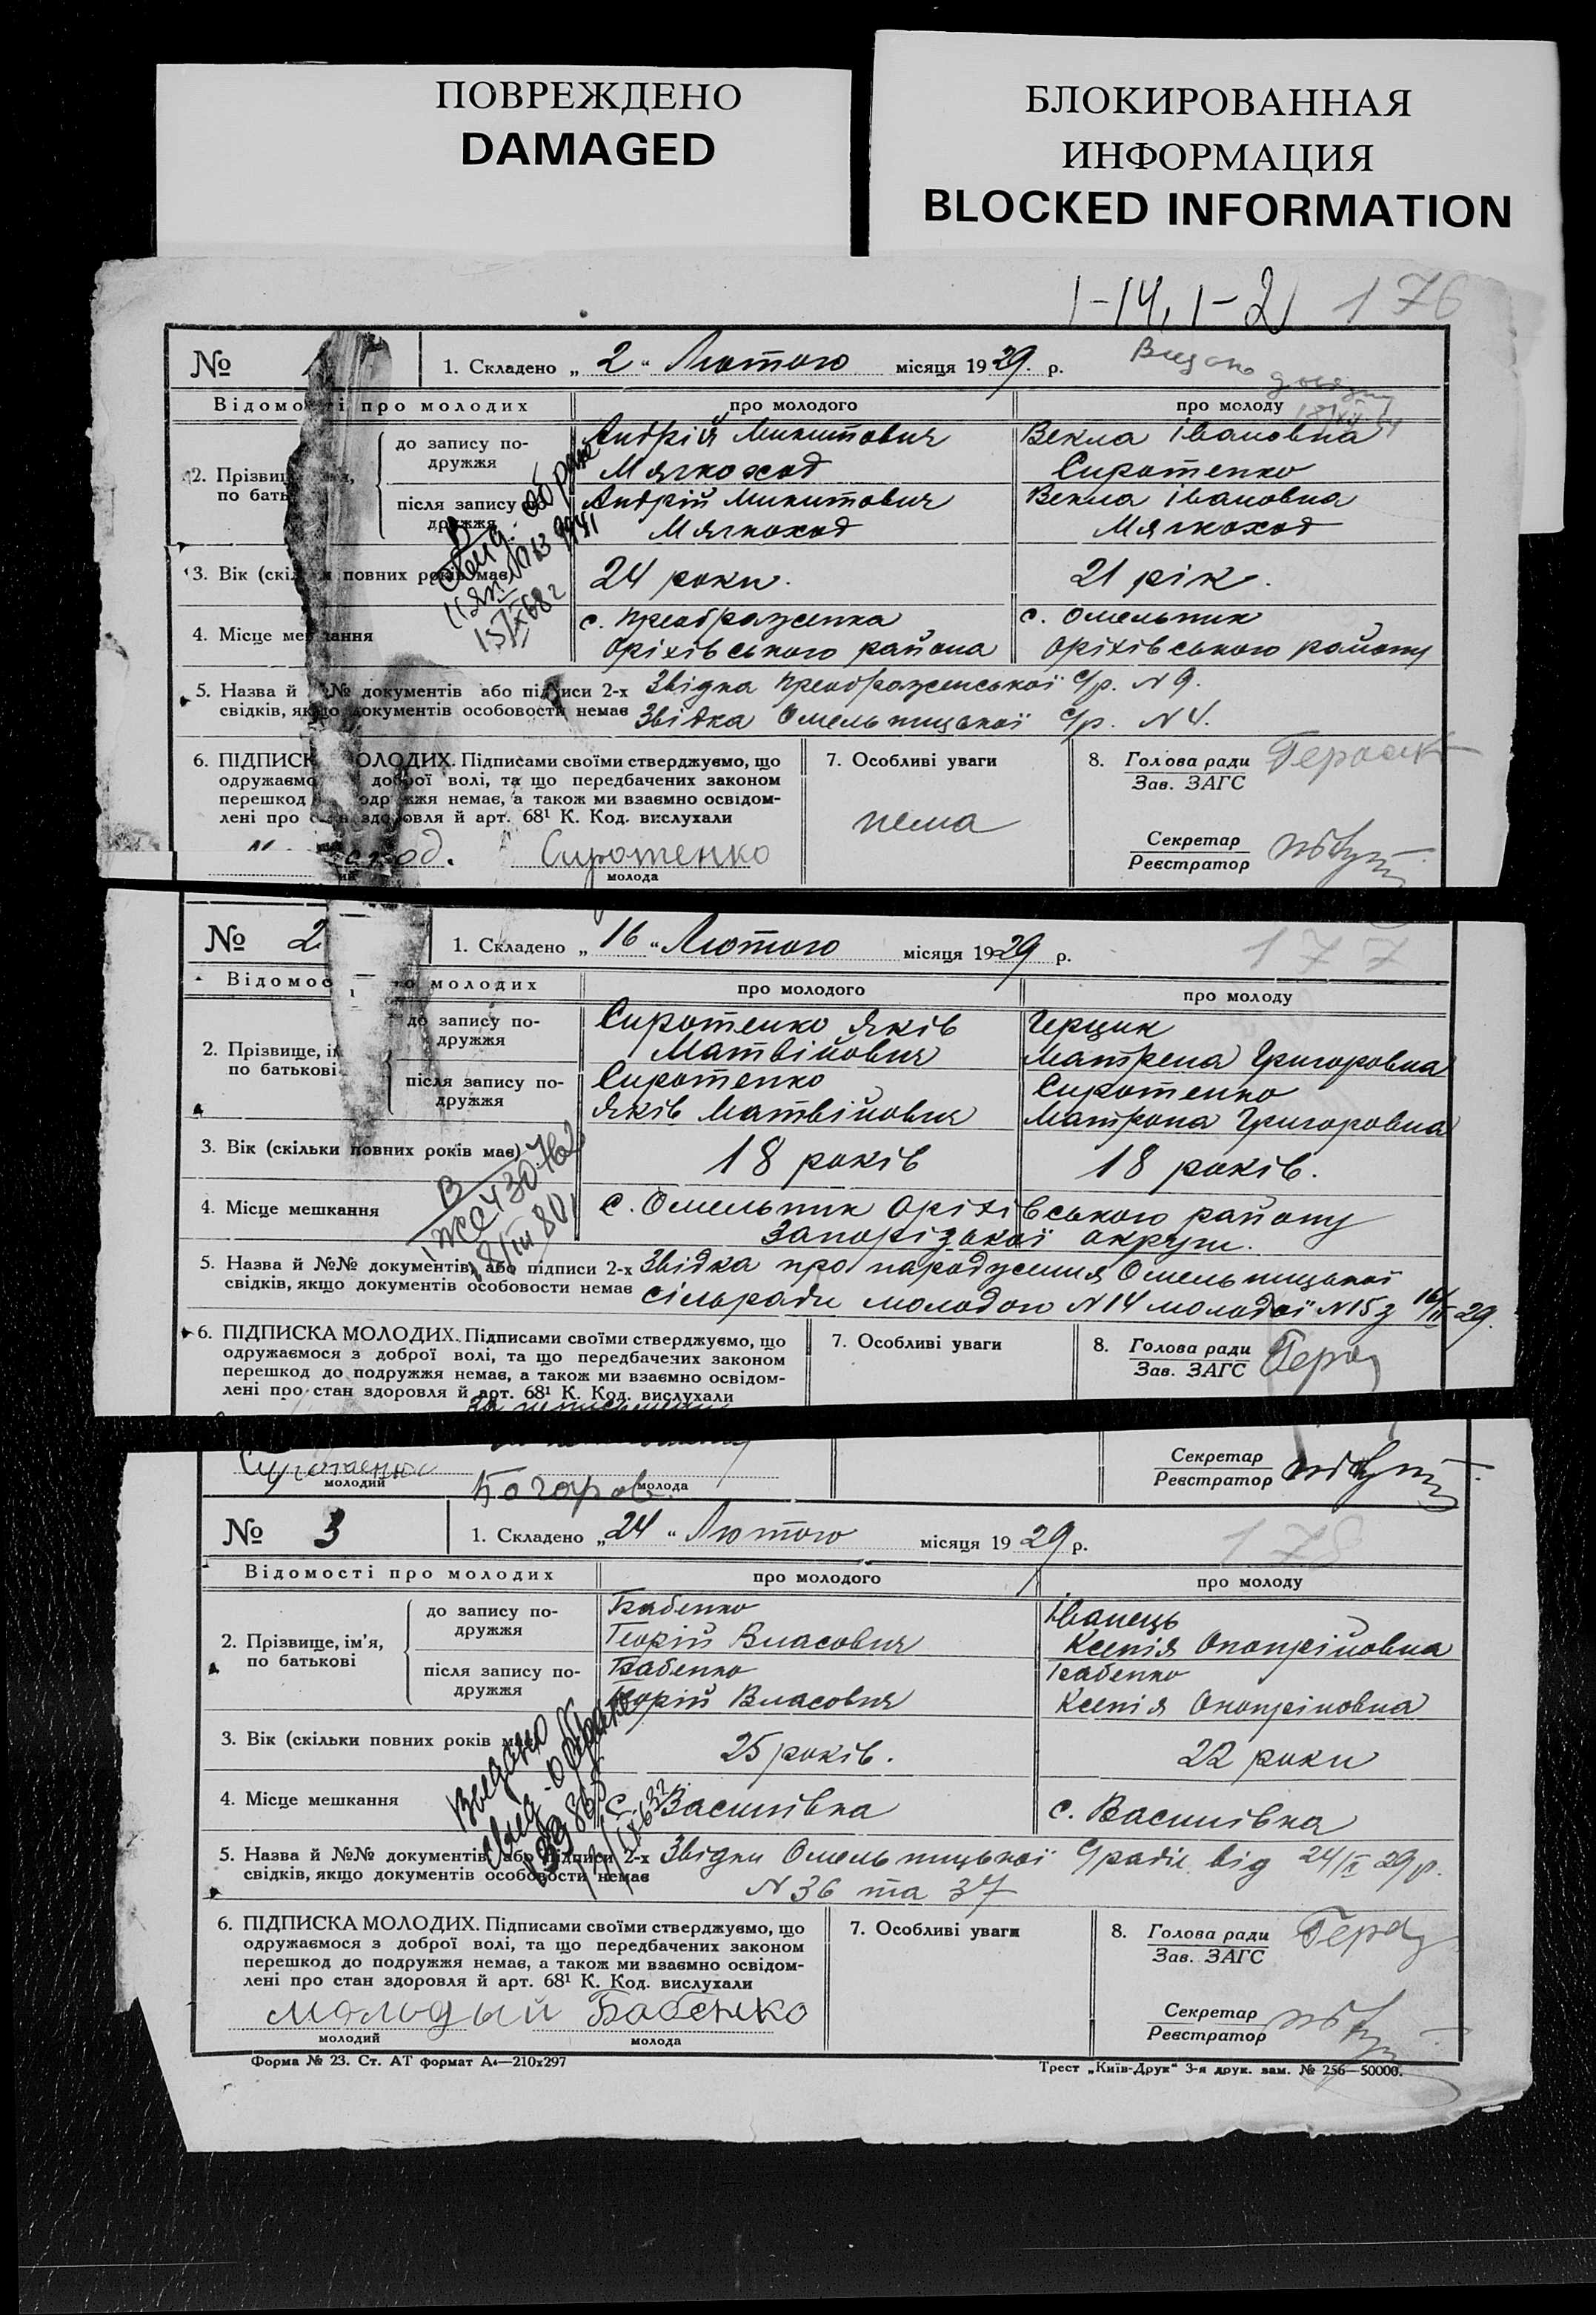 ПОВРЕЖДЕНО
DAMAGED
БЛОКИРОВАННАЯ
ИНФОРМАЦИЯ
BLOCKED INFORMATION
1-14, 1-21 176
№
1. Складено „ 2 “ Лютого місяця 1929. р.
Відомості про молодих
про молодого
про молоду
2. Прізви
по бать
до запису по-
дружжя
Андрій Микитович
Мягкоход
Векла Івановна
Сиротенко
після запису по-
дружжя
Андрій Микитович
Мягкоход
Векла Івановна
Мягкоход
3. Вік (скільки повних років має)
24 роки.
21 рік.
4. Місце мешкання
с. Преображенка
Оріхівського района
с. Омельник
Оріхівського району
5. Назва й №№ документів або підписи 2-х
свідків, якщо документів особовости немає
Звідка Преображенської с/р. N 9.
Звідка Омельницької с/р. N 4.
6. ПІДПИСКА МОЛОДИХ. Підписами своїми стверджуємо, що
одружаємо доброї волі, та що передбачених законом
перешкод подружжя немає, а також ми взаємно освідом-
лені про стан здоровля й арт. 68¹ К. Код. вислухали
Сиротенко
молода
7. Особливі уваги
нема
8. Голова ради
Зав. ЗАГС
Секретар
Реєстратор
№ 2
1. Складено „ 16 “ Лютого місяця 1929 р.
177
Відомос молодих
про молодого
про молоду
2. Прізвище, ім
по батькові
до запису по-
дружжя
Сиротенко Яків
Матвійович
Герцик
Матрена Григоровна
після запису по-
дружжя
Сиротенко
Яків Матвійович
Сиротенко
Матрона Григоровна
3. Вік (скільки повних років має)
18 років
18 років.
4. Місце мешкання
с. Омельник Оріхівського району
Запорізької округи.
5. Назва й №№ документів або підписи 2-х
свідків, якщо документів особовости немає
Звідка про народження Омельницької
сільради молодого N 14 молодої N 15 з 16/II 29.
6. ПІДПИСКА МОЛОДИХ. Підписами своїми стверджуємо, що
одружаємося з доброї волі, та що передбачених законом
перешкод до подружжя немає, а також ми взаємно освідом-
лені про стан здоровля й арт. 68¹ К. Код. вислухали
7. Особливі уваги
8. Голова ради
Зав. ЗАГС
Сиротенко
молодий
молода
Секретар
Реєстратор
№ 3
1. Складено „ 24 “ Лютого місяця 1929 р.
178
Відомості про молодих
про молодого
про молоду
2. Прізвище, ім'я,
по батькові
до запису по-
дружжя
Бабенко
Георій Власович
Іванець
Ксенія Онопрійовна
після запису по-
дружжя
Бабенко
Георій Власович
Бабенко
Ксенія Онопріновна
3. Вік (скільки повних років
25 років.
22 роки
4. Місце мешкання
с. Василівка
с. Василівка
5. Назва й №№ документів або підписи 2-х
свідків, якщо документів особовости немає
Звідки Омельницької с/ради від 24/II 29 р.
N 36 та 37
6. ПІДПИСКА МОЛОДИХ. Підписами своїми стверджуємо, що
одружаємося з доброї волі, та що передбачених законом
перешкод до подружжя немає, а також ми взаємно освідом-
лені про стан здоровля й арт. 68¹ К. Код. вислухали
молодый Бабенко
молодий
молода
7. Особливі уваги
8. Голова ради
Зав. ЗАГС
Секретар
Реєстратор
Форма № 23. Ст. АТ формат А4—210x297
Трест „Київ-Друк“ 3-я друк. зам. № 256—50000.